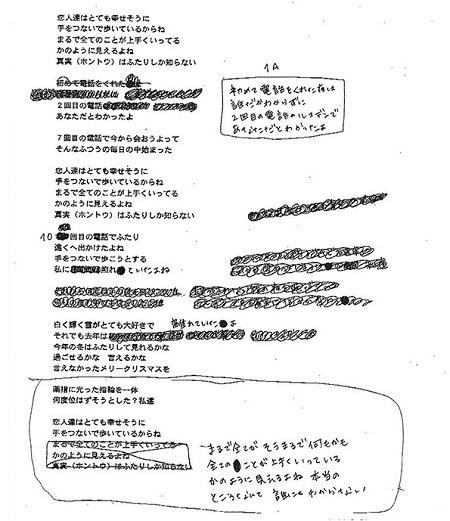 恋人達はとても幸せそうに
手をつないで歩いているからね
まるで全てのことが上手くいってる
かのように見えるよね
真実（ホントウ）はふたりしか知らない
初めて電話をくれた
2回目の電話
あなただとわかったよ
1A
初めて電話をくれた夜は
誰だかわからずに
2回目の電話のルスデンで
あなただとわかったよ
7回目の電話で今から会おうよって
そんなふつうの毎日の中始まった
恋人達はとても幸せそうに
手をつないで歩いているからね
まるで全てのことが上手くいってる
かのように見えるよね
真実（ホントウ）はふたりしか知らない
10回目の電話でふたり
遠くへ出かけたよね
手をつないで歩こうとする
私に照れていたよね
白く輝く雪がとても大好きで
それでも去年は
今年の冬はふたりして見れるかな
過ごせるかな 言えるかな
言えなかったメリークリスマスを
薬指に光った指輪を一体
何度位はずそうとした？私達
恋人達はとても幸せそうに
手をつないで歩いているからね
まるで全てのことが上手くいってる
かのように見えるよね
真実（ホントウ）はふたりしか知らない
まるで全てが そうまるで何もかも
全てのことが上手くいっている
かのように見えるよね 本当の
ところなんて 誰にもわからない